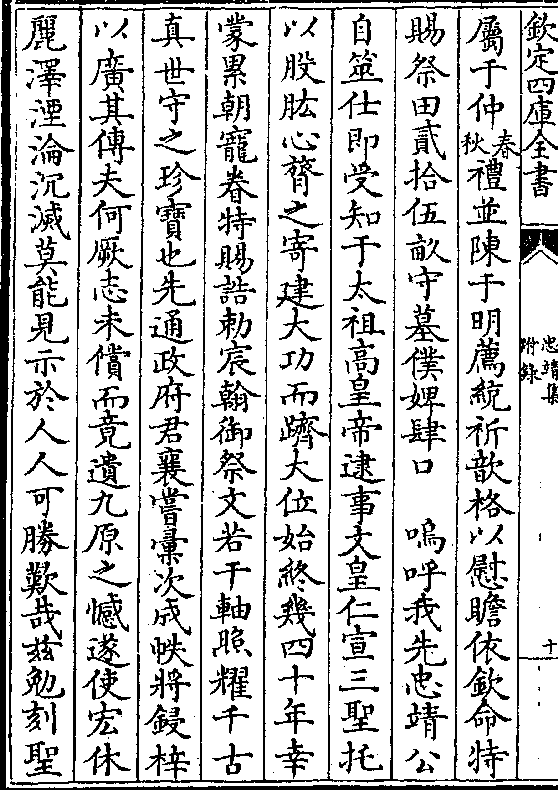 欽定四庫全書
忠靖集
附錄
十
屬于仲春秋禮並陳于明薦統祈歆格以慰瞻依欽命特
賜祭田貳拾伍畝守墓僕婢肆口　嗚呼我先忠靖公
自筮仕即受知于太祖高皇帝逮事文皇仁宣三聖托
以股肱心膂之寄建大功而躋大位始終幾四十年幸
蒙累朝寵眷特賜誥勅宸翰御祭文若干軸照耀千古
真世守之珍寶也先通政府君襄嘗彙次成帙將鋟梓
以廣其傳夫何厥志未償而竟遺九原之憾遂使宏休
麗澤湮淪沉滅莫能見示於人人可勝歎哉兹勉刻聖